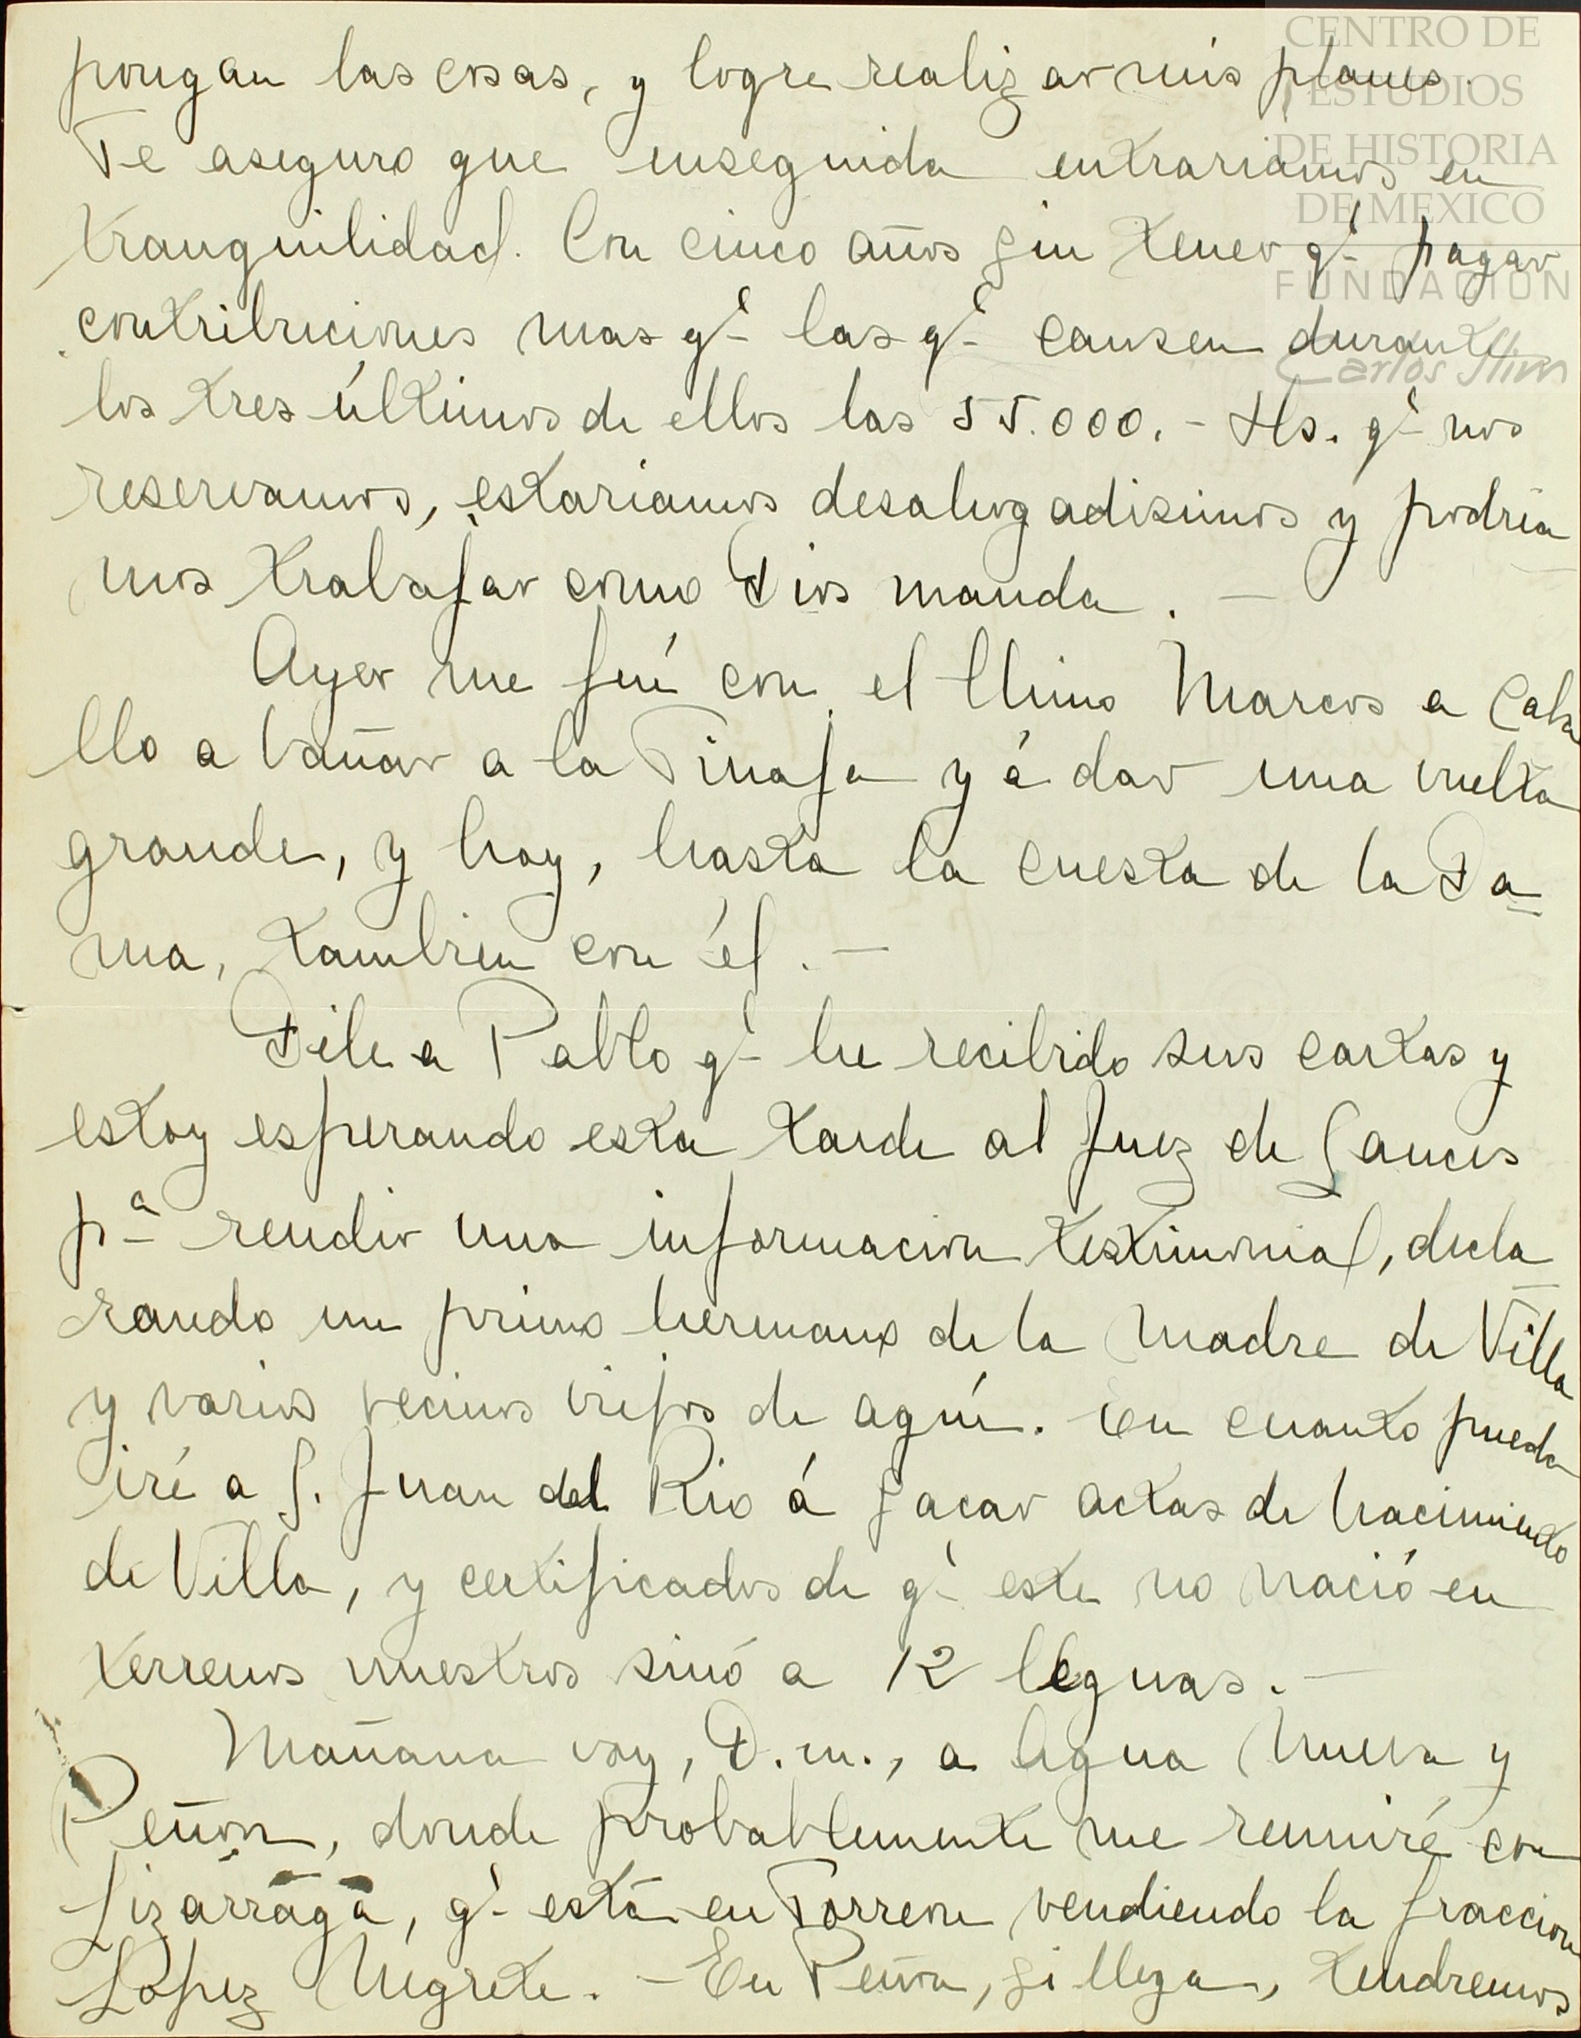 CENTRO DE
ESTUDIOS
DE HISTORIA
DE MEXICO
FUNDACIÓN
Carlos Slim
pongan las cosas, y logre realizar mis planes.
Te aseguro que enseguida entrariamos en
tranquilidad. Con cinco años sin tener qe pagar
contribuciones mas qe las qe causen durante
los tres últimos de ellos las 55.000.- Hs. qe nos
reservamos, estariamos desahogadisimos y podria
mos trabajar como Dios manda. —
Ayer me fuí con el Marcos a caba
llo a bañar a la Tinaja y á dar una vuelta
grande, y hoy, hasta la cuesta de la Da=
ma, tambien con él. —
Dile a Pablo qe he recibido sus cartas y
estoy esperando esta tarde al Juez de Sauces
pa rendir una informacion testimonial, decla
rando un primo hermano de la madre de Villa
y varios vecinos viejos de aquí. En cuanto pueda
iré a S. Juan del Rio á sacar actas de nacimiento
de Villa, y certificados de qe este no nació en
terrenos nuestros sinó a 12 leguas. —
Mañana voy, D.m., a Agua Nueva y
Peñon, donde probablemente me reuniré con
Lizárraga, qe está en Torreon vendiendo la fraccion
López Negrete. — En Peñon, si llega, tendremos